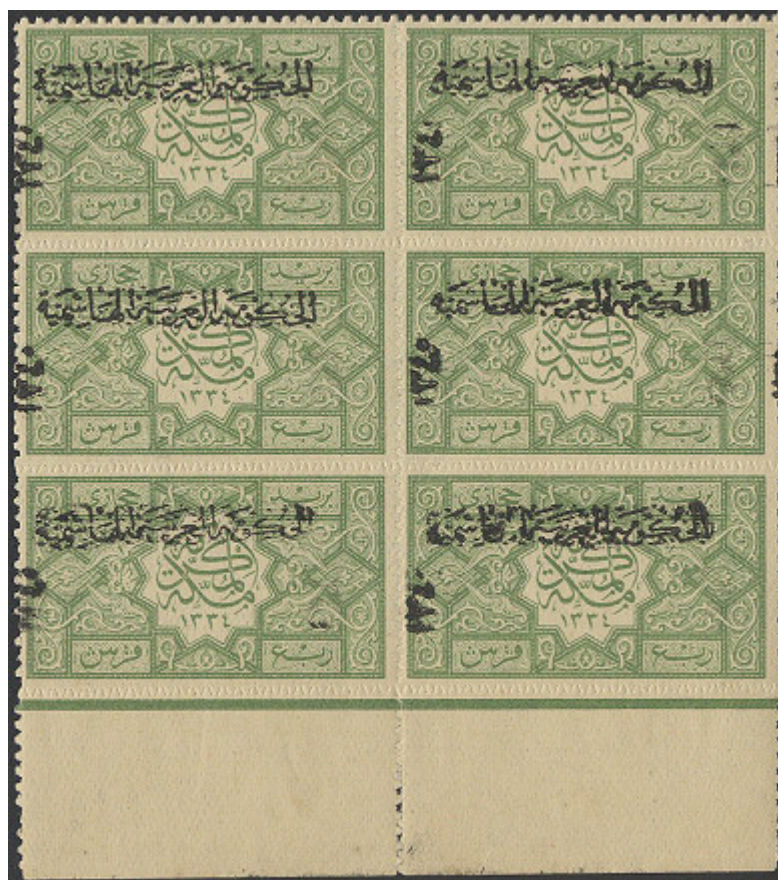 بريد حجازي
الحكومة العربية الهاشمية
١٣٤٠
مكة المكرمة
١٣٣٤
ربع قرش
بريد حجازي
الحكومة العربية الهاشمية
١٣٤٠
مكة المكرمة
١٣٣٤
ربع قرش
بريد حجازي
الحكومة العربية الهاشمية
١٣٤٠
مكة المكرمة
١٣٣٤
ربع قرش
بريد حجازي
الحكومة العربية الهاشمية
١٣٤٠
مكة المكرمة
١٣٣٤
ربع قرش
بريد حجازي
الحكومة العربية الهاشمية
١٣٤٠
مكة المكرمة
١٣٣٤
ربع قرش
بريد حجازي
الحكومة العربية الهاشمية
مكة المكرمة
١٣٣٤
ربع قرش